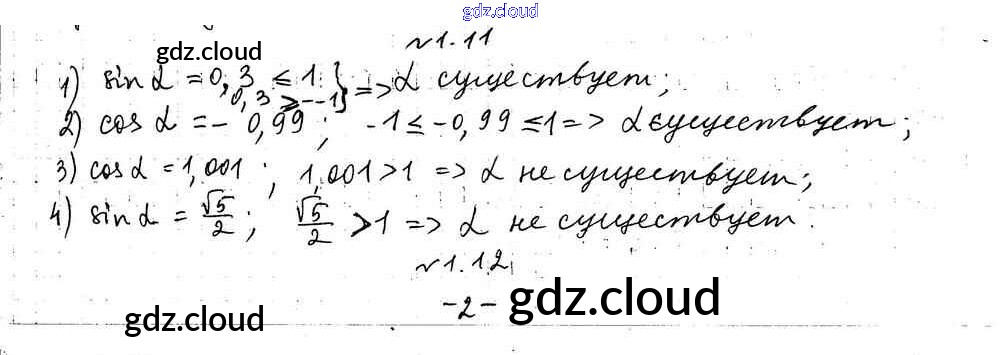 gdz.cloud
№1.11
gdz.cloud
1) sin α = 0,3 ≤ 1 } => α существует;
0,3 ≥ -1
2) cos α = - 0,99 ; -1 ≤ -0,99 ≤ 1 => α существует;
3) cos α = 1,001 ; 1,001 > 1 => α не существует;
4) sin α = √5/2 ; √5/2 > 1 => α не существует.
№1.12
-2-
gdz.cloud
gdz.cloud